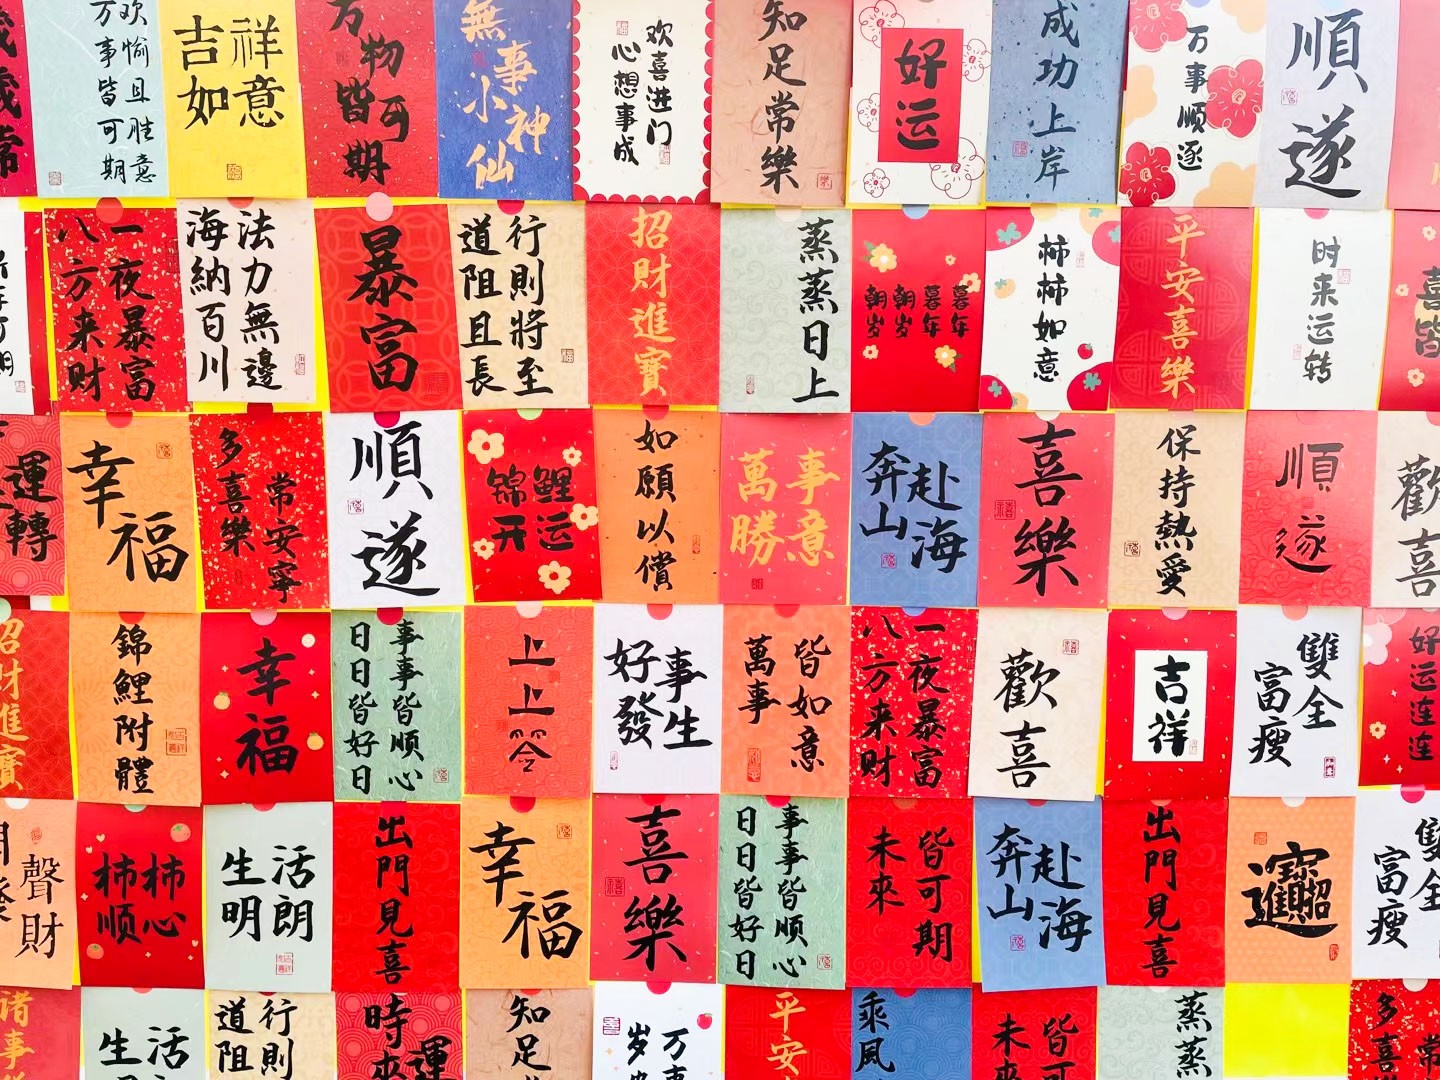 欢愉且胜意
万事皆可期
吉祥
如意
万物
皆可
期
無事
小神
仙
欢喜进门
心想事成
知足常樂
好运
成功上岸
万事顺遂
順遂
一夜暴富
八方来财
法力無邊
海納百川
暴富
行則將至
道阻且長
招財進寶
蒸蒸日上
朝朝暮暮
岁岁年年
柿柿如意
平安喜樂
时来运转
喜皆
運轉
幸福
多喜樂
常安寧
順遂
锦鲤
开运
如願以償
萬事
勝意
奔赴
山海
喜樂
保持熱愛
順遂
歡喜
招財進寶
錦鯉附體
幸福
事事皆順心
日日皆好日
上上签
好事
發生
萬事
皆如意
一夜暴富
八方来财
歡喜
吉祥
富瘦
雙全
好运连连
聲財
柿柿
顺心
生活
明朗
出門見喜
幸福
喜樂
事事皆順心
日日皆好日
未來
皆可期
奔赴
山海
出門見喜
招財進寶
富瘦
雙全
諸事
生活
行則
道阻
時來
運
知足
万事
岁
平安
乘風
未來
皆可
蒸蒸
多喜
常